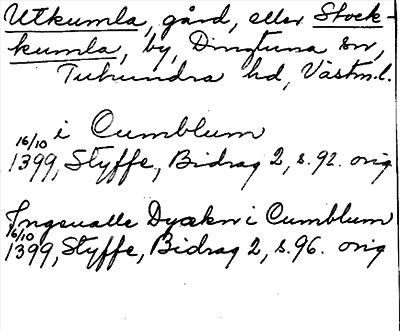 Utkumla, gård, eller Stock-
kumla, by, Dingtuna sn,
Tuhundra hd, Västm.l.
i Cumblum
16/10
1399, Styffe, Bidrag 2, s.92. orig
Ingeualle Dyækn i Cumblum
16/10
1399, Styffe, Bidrag 2, s.96. orig